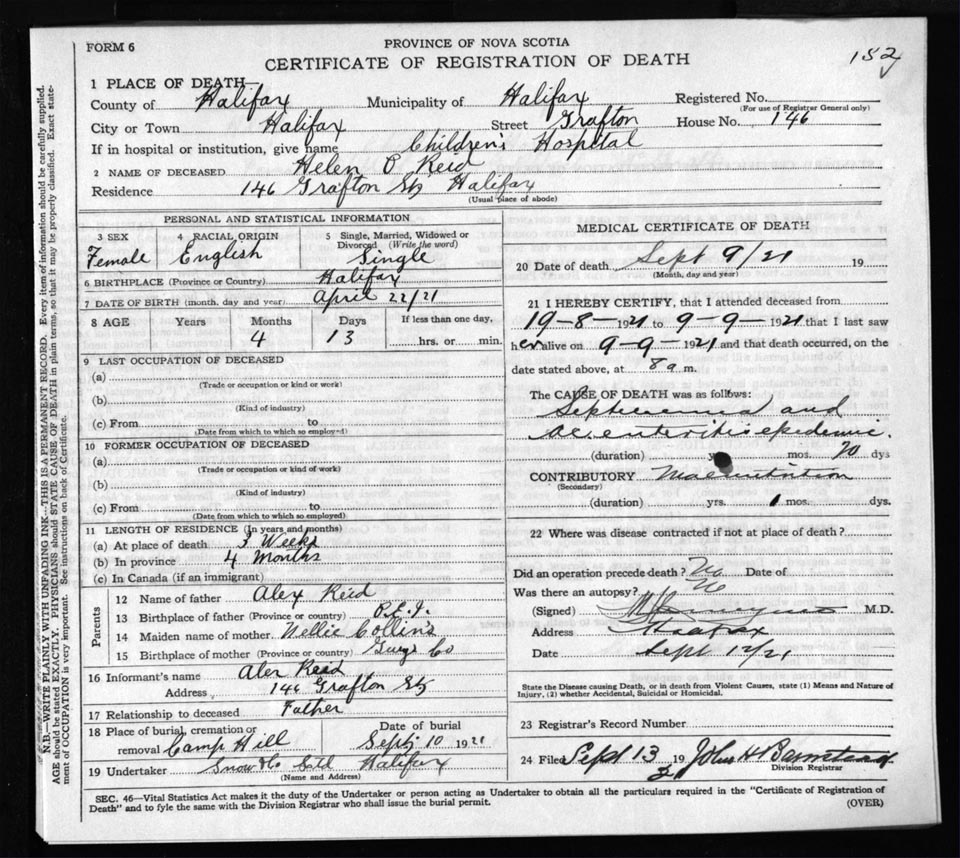 FORM 6
PROVINCE OF NOVA SCOTIA
CERTIFICATE OF REGISTRATION OF DEATH
152
1 PLACE OF DEATH—
County of Halifax Municipality of Halifax Registered No.
(For use of Registrar General only)
City or Town Halifax Street Grafton House No. 146
If in hospital or institution, give name Children's Hospital
2 NAME OF DECEASED Helen O Reid
Residence 146 Grafton St Halifax
(Usual place of abode)
PERSONAL AND STATISTICAL INFORMATION
3 SEX 4 RACIAL ORIGIN 5 Single, Married, Widowed or Divorced (Write the word)
Female English Single
6 BIRTHPLACE (Province or Country) Halifax
7 DATE OF BIRTH (month, day and year) April 22/21
8 AGE Years Months Days If less than one day,
4 13 hrs. or min.
9 LAST OCCUPATION OF DECEASED
(a)
(Trade or occupation or kind or work)
(b)
(Kind of industry)
(c) From to
(Date from which to which so employed)
10 FORMER OCCUPATION OF DECEASED
(a)
(Trade or occupation or kind of work)
(b)
(Kind of industry)
(c) From to
(Date from which to which so employed)
11 LENGTH OF RESIDENCE (In years and months)
(a) At place of death 3 Weeks
(b) In province 4 Months
(c) In Canada (if an immigrant)
Parents
12 Name of father Alex Reid
13 Birthplace of father (Province or country) P.E.I.
14 Maiden name of mother Nellie Collins
15 Birthplace of mother (Province or country) Guys Co
16 Informant's name Alex Reid
Address 146 Grafton St
17 Relationship to deceased Father
18 Place of burial, cremation or removal Camp Hill Date of burial Sept 10 1921
19 Undertaker Snow & Co Ltd Halifax
(Name and Address)
MEDICAL CERTIFICATE OF DEATH
20 Date of death Sept 9/21 19
(Month, day and year)
21 I HEREBY CERTIFY, that I attended deceased from
19-8-1921 to 9-9-1921 that I last saw
her alive on 9-9-1921 and that death occurred, on the
date stated above, at 8 a.m.
The CAUSE OF DEATH was as follows:
Septicaemia and
enteritis epidemic.
(duration) mos. 20 dys
CONTRIBUTORY Malnutrition
(Secondary)
(duration) yrs. 1 mos. dys.
22 Where was disease contracted if not at place of death?
Did an operation precede death? No Date of
Was there an autopsy? No
(Signed) M.D.
Address Halifax
Date Sept 12/21
State the Disease causing Death, or in death from Violent Causes, state (1) Means and Nature of
Injury, (2) whether Accidental, Suicidal or Homicidal.
23 Registrar's Record Number
24 Filed Sept 13 19 John H Barnstead
Division Registrar
SEC. 46—Vital Statistics Act makes it the duty of the Undertaker or person acting as Undertaker to obtain all the particulars required in the "Certificate of Registration of
Death" and to fyle the same with the Division Registrar who shall issue the burial permit. (OVER)
N.B.—WRITE PLAINLY WITH UNFADING INK—THIS IS A PERMANENT RECORD. Every item of information should be carefully supplied.
AGE should be stated EXACTLY. PHYSICIANS should STATE CAUSE OF DEATH in plain terms, so that it may be properly classified. Exact state-
ment of OCCUPATION is very important. See instructions on back of Certificate.